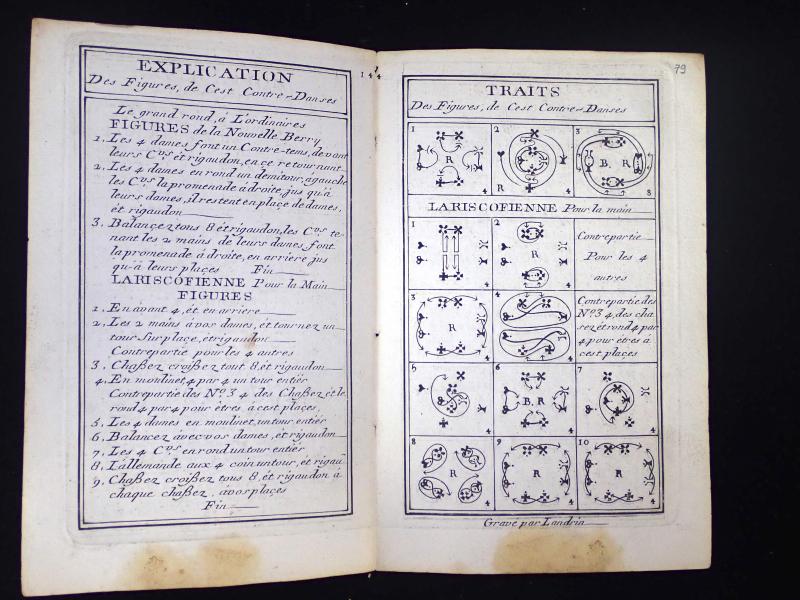 EXPLICATION
Des Figures, de Cest Contre-Danses
Le grand rond, à L'ordinaires
FIGURES de la Nouvelle Berry
1. Les 4 dames font un Contre-tems, devant
leurs C.vs et rigaudon, en çe retournant
2. Les 4 dames en rond un demitour, àgauche
les C.vs la promenade à droite, jus qu'à
leurs dames, il restent en plaçe de dames,
ét rigaudon
3. Balançez tous 8 ét rigaudon, les C.vs te-
nant les 2 mains de leurs dames font
la promenade à droite, en arriere jus
qu-à leurs plaçes Fin
LARISCOFIENNE Pour la Main
FIGURES
1. En avant 4, ét, en arriere
2. Les 2 mains à vos dames, ét tournez un
tour sur plaçe, ét rigaudon
Contrepartie pour les 4 autres
3. Chaßez croißez tout 8, ét rigaudon
4. En moulinet, 4 par 4 un tour entiér
Contrepartie des N.o 3 4 des Chaßez ét le
rond 4 par 4 pour êtres à cest plaçes,
5. Les 4 dames en moulinet, un tour entiér
6. Balancez avec vos dames, ét rigaudon
7. Les 4 C.vs en rond un tour entiér
8. L'allemande aux 4 coin un tour, ét rigau
9. Chaßez croißez tous 8, ét rigaudon à
chaque chaßez, à vos plaçes
Fin
144
79
TRAITS
Des Figures, de Cest Contre-Danses
1 R 4
2 4
3 B. R 8
LARISCOFIENNE Pour la main
1 4
2 R 4
Contrepartie
Pour les 4
autres
3 R 4
4 4
Contrepartie des
N.o 3 4, des cha
sez ét rond 4 par
4 pour étres à
cest plaçes
5 4
6 B. R 4
7 4
8 R 4
9 R 4
10 R 4
Gravé par Landrin